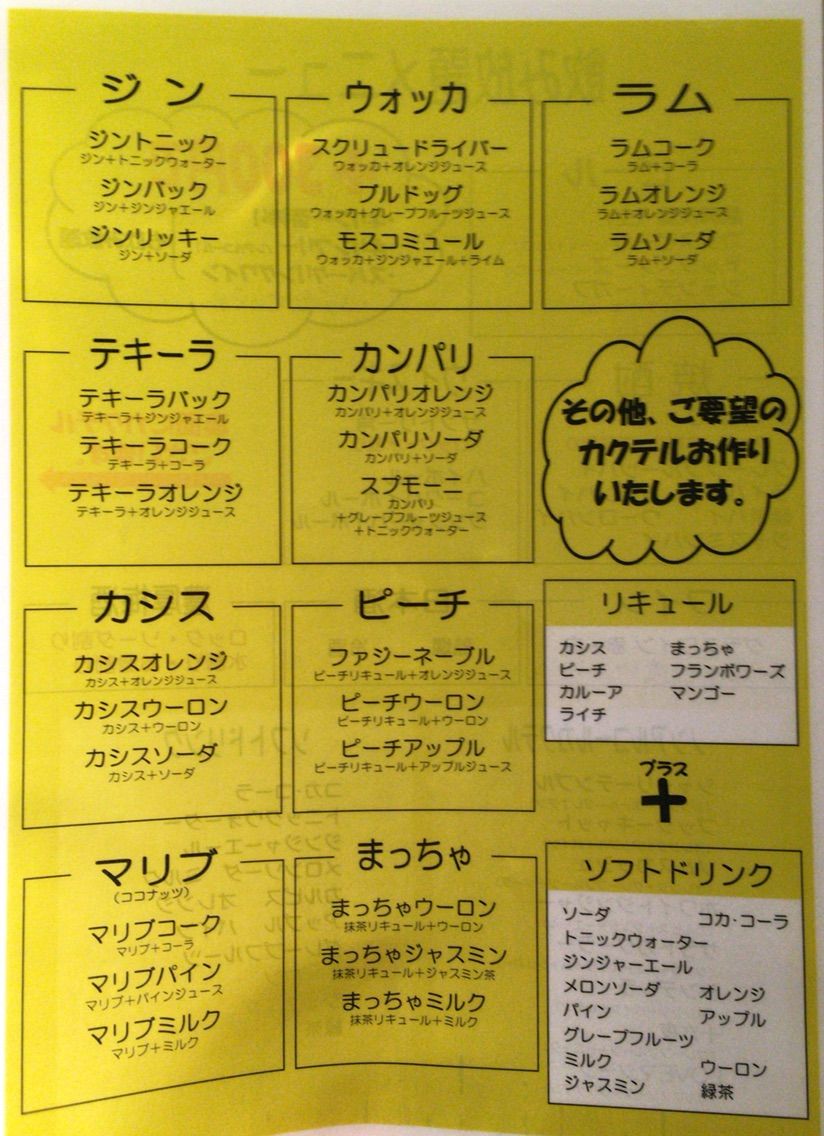 ジン
ジントニック
ジン+トニックウォーター
ジンバック
ジン+ジンジャエール
ジンリッキー
ジン+ソーダ
ウォッカ
スクリュードライバー
ウォッカ+オレンジジュース
ブルドッグ
ウォッカ+グレープフルーツジュース
モスコミュール
ウォッカ+ジンジャエール+ライム
ラム
ラムコーク
ラム+コーラ
ラムオレンジ
ラム+オレンジジュース
ラムソーダ
ラム+ソーダ
テキーラ
テキーラバック
テキーラ+ジンジャエール
テキーラコーク
テキーラ+コーラ
テキーラオレンジ
テキーラ+オレンジジュース
カンパリ
カンパリオレンジ
カンパリ+オレンジジュース
カンパリソーダ
カンパリ+ソーダ
スプモーニ
カンパリ
+グレープフルーツジュース
+トニックウォーター
その他、ご要望の
カクテルお作り
いたします。
カシス
カシスオレンジ
カシス+オレンジジュース
カシスウーロン
カシス+ウーロン
カシスソーダ
カシス+ソーダ
ピーチ
ファジーネーブル
ピーチリキュール+オレンジジュース
ピーチウーロン
ピーチリキュール+ウーロン
ピーチアップル
ピーチリキュール+アップルジュース
リキュール
カシス まっちゃ
ピーチ フランボワーズ
カルーア マンゴー
ライチ
プラス
+
マリブ
(ココナッツ)
マリブコーク
マリブ+コーラ
マリブパイン
マリブ+パインジュース
マリブミルク
マリブ+ミルク
まっちゃ
まっちゃウーロン
抹茶リキュール+ウーロン
まっちゃジャスミン
抹茶リキュール+ジャスミン茶
まっちゃミルク
抹茶リキュール+ミルク
ソフトドリンク
ソーダ コカ・コーラ
トニックウォーター
ジンジャーエール
メロンソーダ オレンジ
パイン アップル
グレープフルーツ
ミルク ウーロン
ジャスミン 緑茶